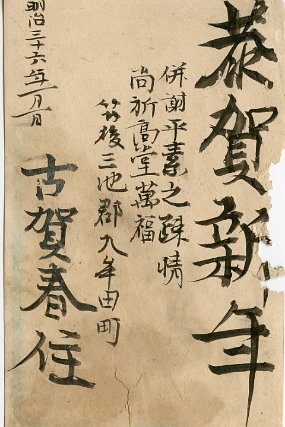 恭賀新年
併謝平素之疎情
尚祈高堂萬福
筑後三池郡九牟田町
明治三十六年一月一日
古賀春住